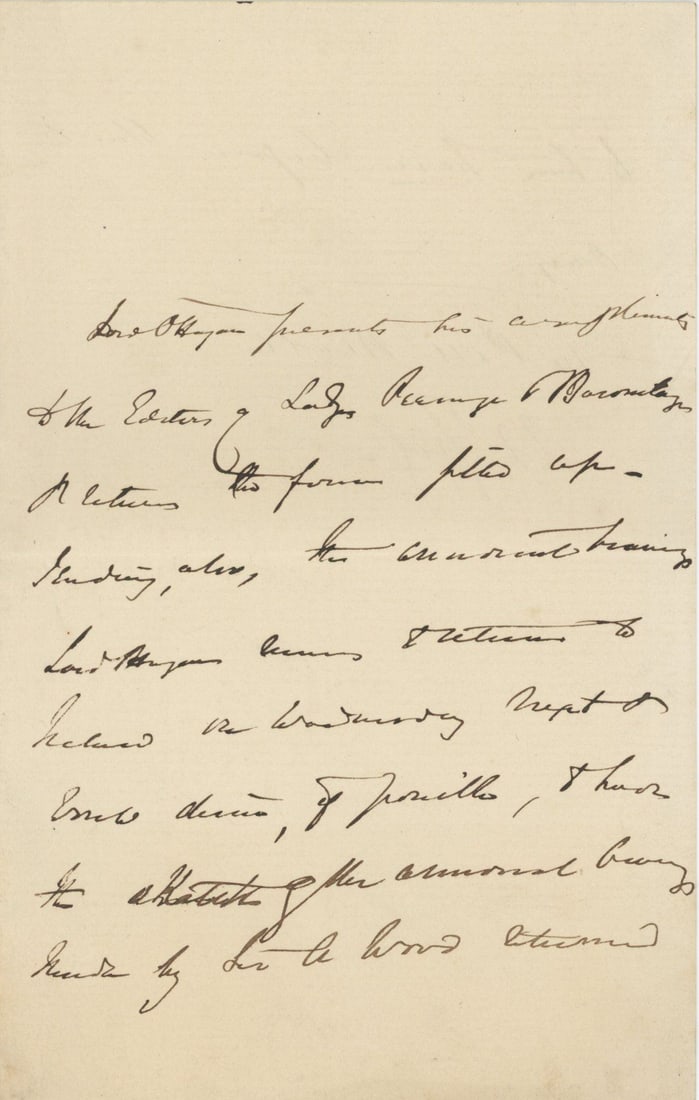 Lord O'Hagan presents his compliments
to the Editors of Lodge's Peerage & Baronetage
& returns the form filled up -
sending, also, the armorial bearings
Lord O'Hagan means to return to
Ireland on Wednesday next &
would desire, if possible, to have
the sketch of the armorial bearings
made by Sir A Wood returned